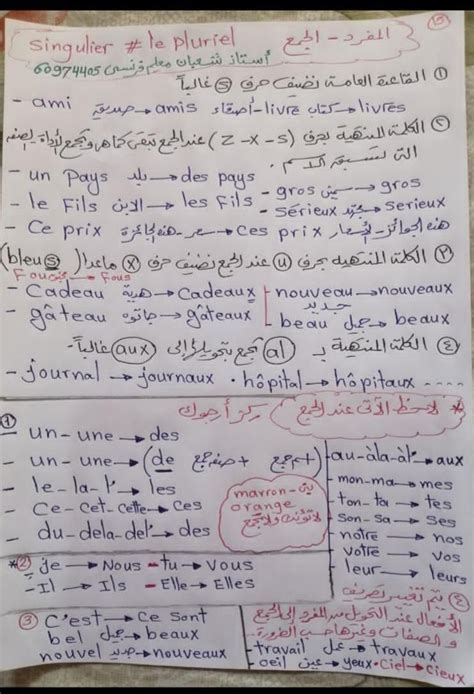 ⑮
المفرد - الجمع singulier # le pluriel
أستاذ شعبان معلم فرنسى 60974405
① القاعدة العامة نضيف حرف (s) غالباً
- ami صديق → amis أصدقاء - livre كتاب → livres
② الكلمة المنتهية بحرف (Z - X - S) عند الجمع تبقى كما هى وتجمع الأداة أو الصفه
التى تسبق الاسم.
- un pays بلد → des pays
- gros سمين → gros
- le fils الابن → les fils
- sérieux مجتهد → serieux
- Ce prix سعر - هذه الجائزة → Ces prix هذه الجوائز - الأسعار
③ الكلمة المنتهية بحرف (u) عند الجمع نضيف حرف (x) ماعدا (bleus)
Fou مجنون → Fous
- Cadeau هدية → Cadeaux
- nouveau → nouveaux جديد
- gâteau جاتوه → gâteaux
- beau جميل → beaux
④ الكلمة المنتهية بـ (al) تجمع بتحويلها إلى (aux) غالباً -
- journal → journaux . hôpital → hôpitaux ....
* لاحظ الآتى عند الجمع ركز أرجوك
①
- un - une → des
- un - une → (de + صفه جمع + اسم جمع)
- le - la - l' → les
- Ce - cet - cette → ces
- du - dela - del' → des
marron - بنى
orange
لا تؤنث ولا تجمع
- au - àla - àl' → aux
- mon - ma → mes
- ton - ta → tes
- son - sa → ses
- notre → nos
- votre → vos
- leur → leurs
*② je → Nous - tu → Vous
- Il → Ils - Elle → Elles
③ C'est → Ce sont
bel جميل → beaux
nouvel جديد → nouveaux
④ يتم تغيير تصريف
الأفعال عند التحويل من المفرد إلى الجمع
والصفات وغيرها حسب الضرورة.
- travail عمل → travaux
- oeil عين → yeux . Ciel → Cieux